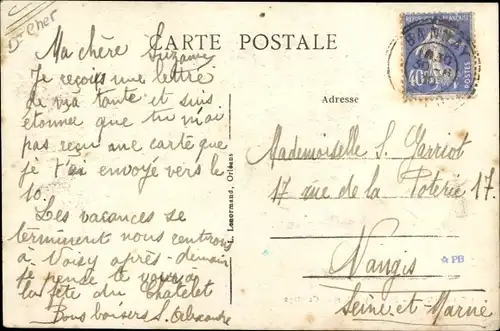 Dt Cher
CARTE POSTALE
REPUBLIQUE FRANÇAISE
40
POSTES
BANNAY
Adresse
Ma chère Suzanne
Je reçois une lettre
de ma tante et suis
étonner que tu n'ai
pas reçu une carte que
je t'ai envoyé vers le
10.
Les vacances se
terminent nous rentrons
à Voisy après-demain
je pense te voir à
la fête du Chatelet
Bons baisers S. Alexandre
L. Lenormand, Orléans
Mademoiselle S. Garriot
17 rue de la Poterie 17.
Nangis
☆PB
Seine et Marne